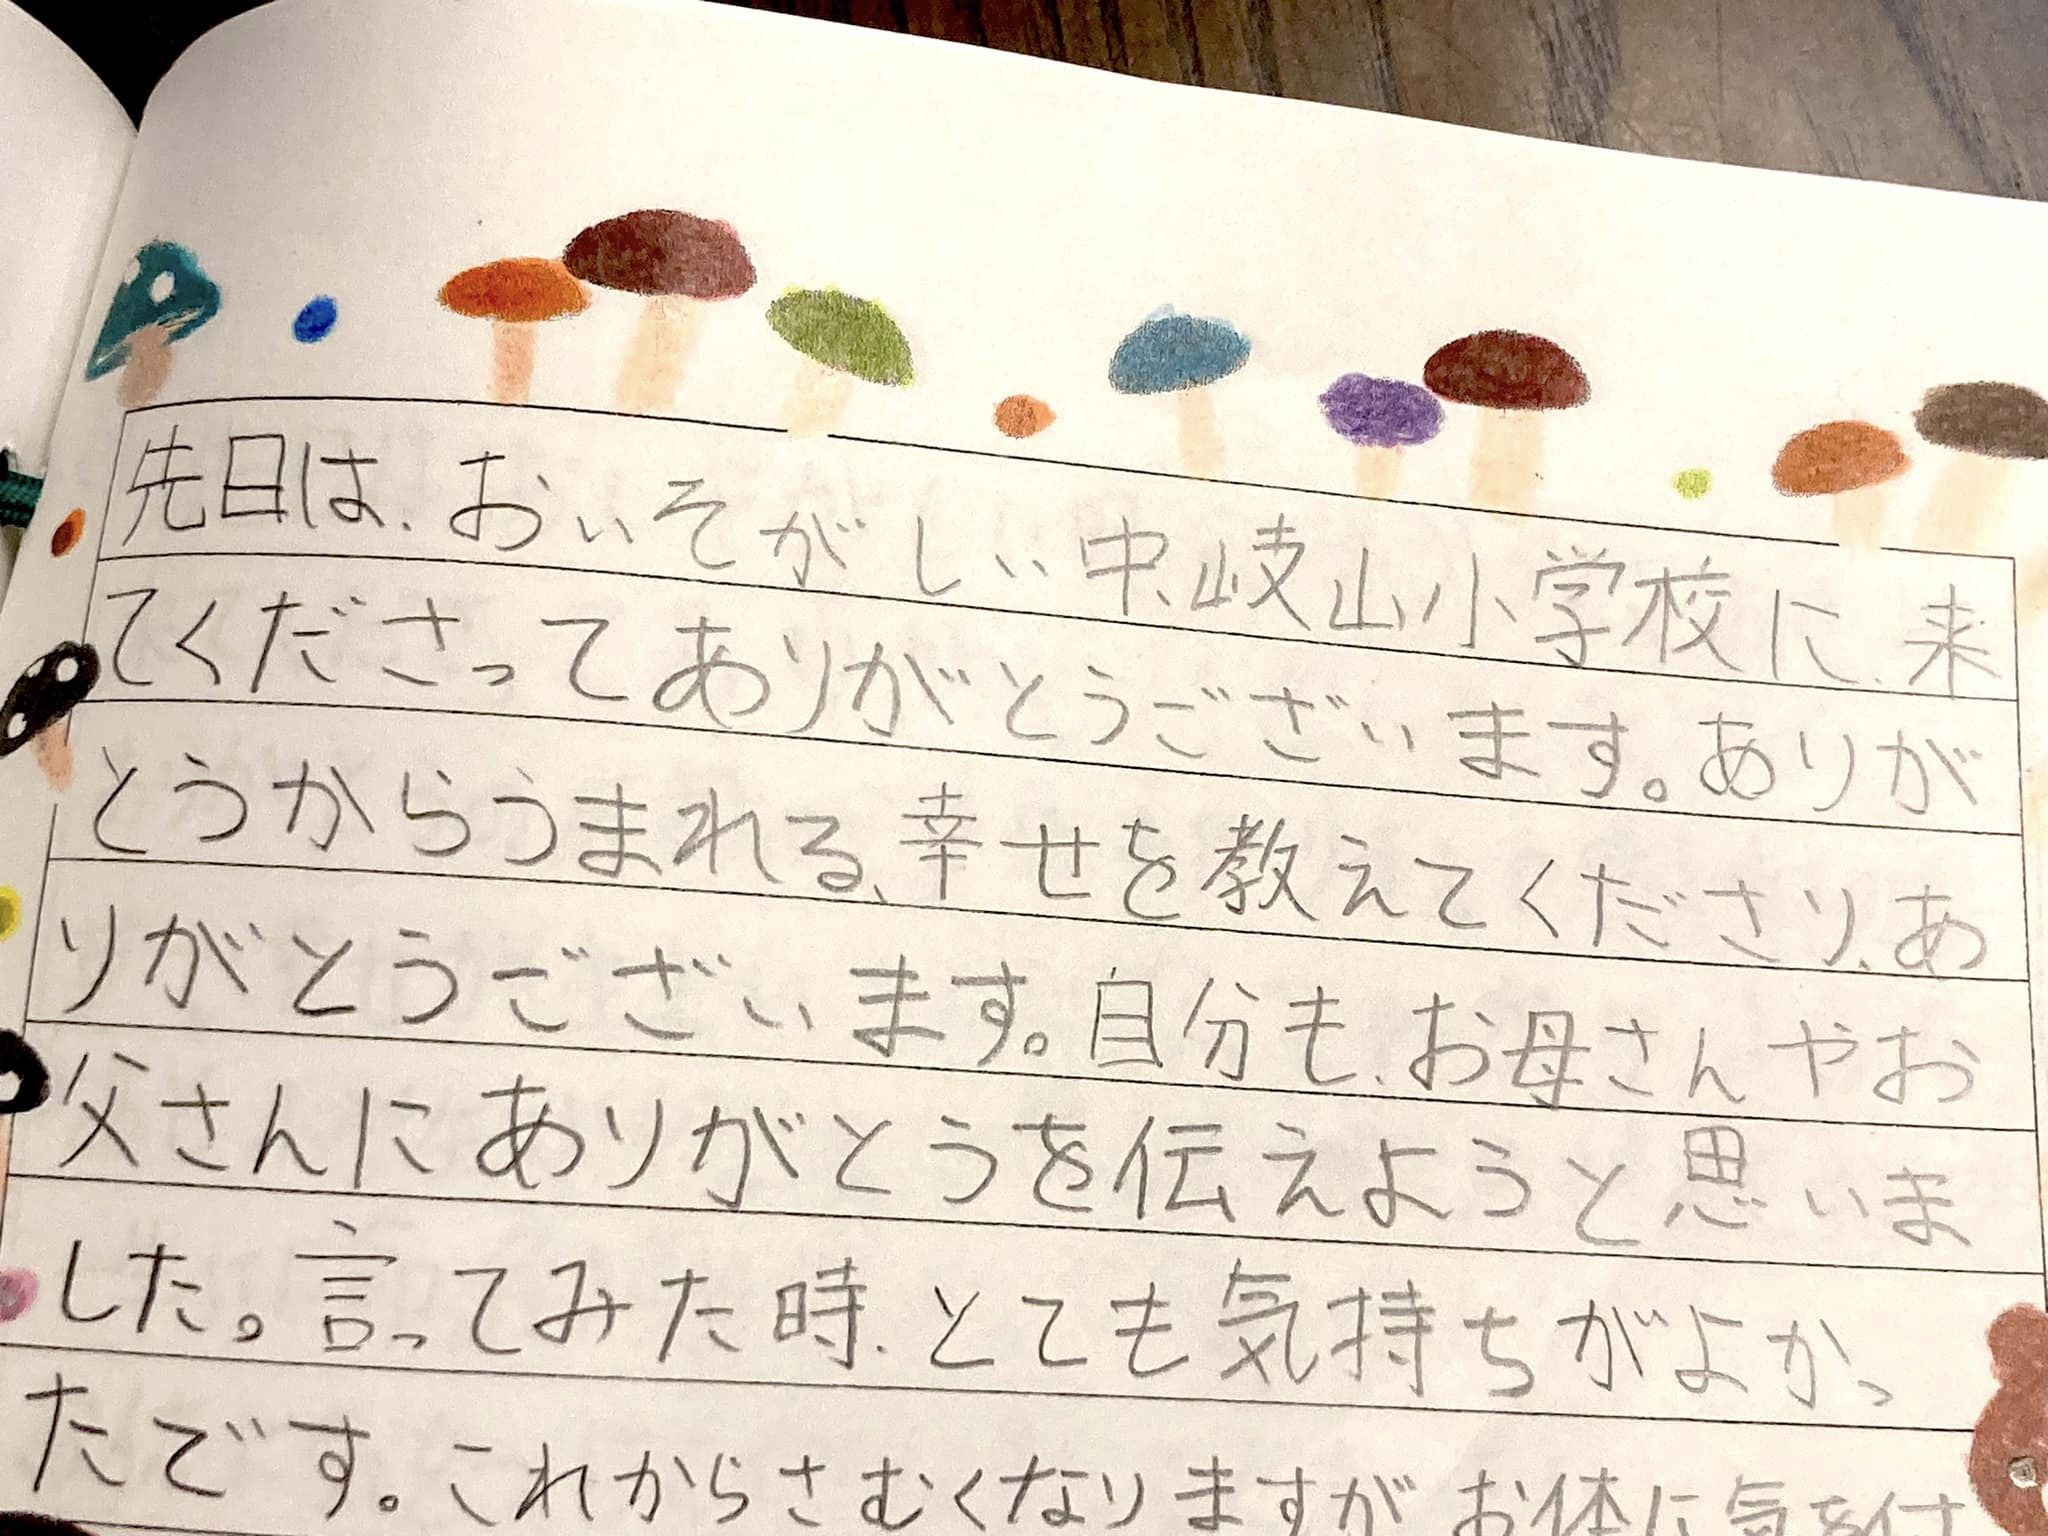 先日は、おいそがしい中、岐山小学校に、来
てくださってありがとうございます。ありが
とうからうまれる、幸せを教えてくださり、あ
りがとうございます。自分も、お母さんやお
父さんにありがとうを伝えようと思いま
した。言ってみた時、とても気持ちがよかっ
たです。これからさむくなりますがお体に気を付